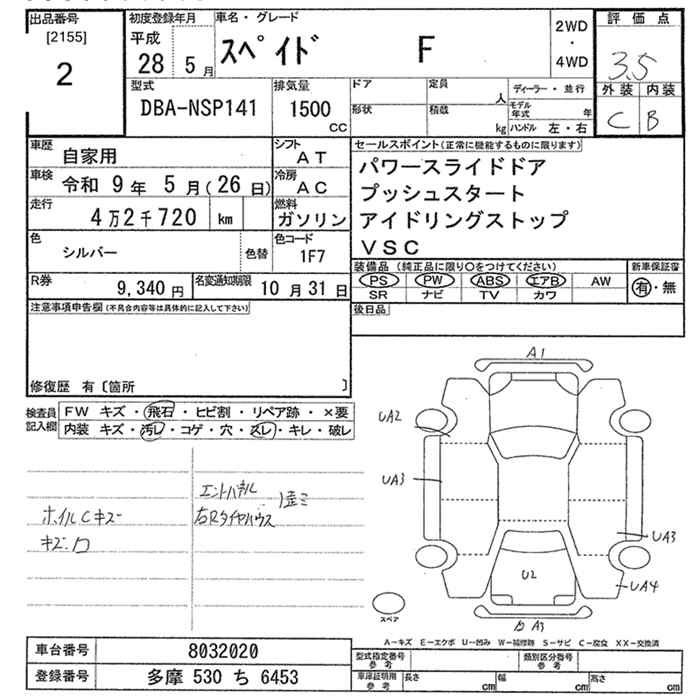 出品番号
[2155]
2
初度登録年月
平成
28 5月
車名・グレード
スペイド F
2WD
・
4WD
評価点
3.5
外装 内装
C B
型式
DBA-NSP141
排気量
1500
CC
ドア
定員
人
形状
積載
kg
ディーラー・並行
モデル年式 年
ハンドル 左・右
車歴 自家用
シフト AT
車検 令和 9年 5月(26日)
冷房 AC
走行 4万2千720 km
燃料 ガソリン
色 シルバー 色替
色コード 1F7
R券 9,340円
名変通知期限 10月31日
セールスポイント(正常に機能するものに限ります)
パワースライドドア
プッシュスタート
アイドリングストップ
VSC
装備品 (純正品に限り○をつけてください)
新車保証書
PS PW ABS エアB AW
SR ナビ TV カワ
有・無
後日品
注意事項申告欄(不具合内容等は具体的に記入して下さい)
修復歴 有〔箇所 〕
検査員記入欄
FW キズ・飛石・ヒビ割・リペア跡・×要
内装 キズ・汚レ・コゲ・穴・スレ・キレ・破レ
ホイルCキズ
キズ.
エンドパネル
右Rタイヤハウス
A1
UA2
UA3
UA3
U2
UA4
A3
スペア
A−キズ E−エクボ U−凹み W−補修跡 S−サビ C−腐食 XX−交換済
車台番号 8032020
登録番号 多摩 530 ち 6453
型式指定番号 参考
類別区分番号 参考
車庫証明用 参考
長さ cm
幅 cm
高さ cm